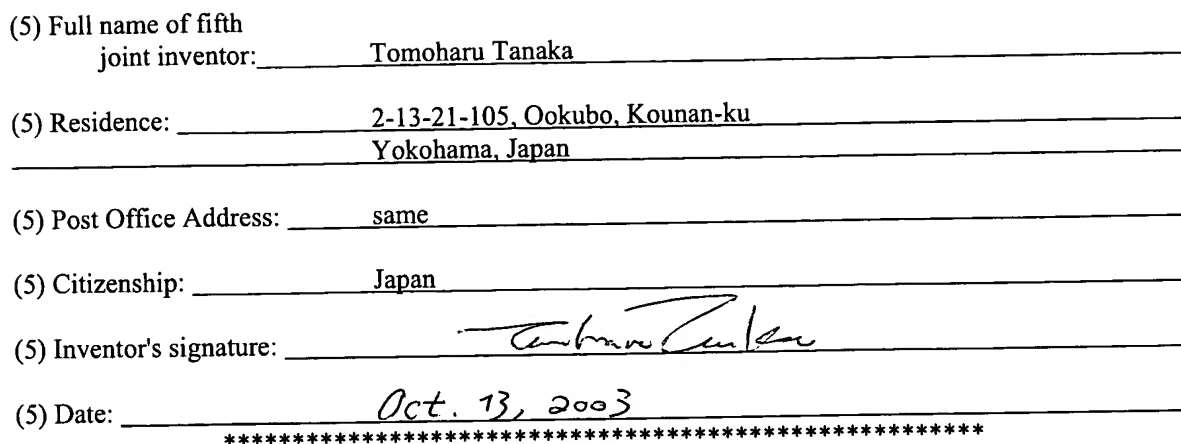 (5) Full name of fifth
joint inventor: Tomoharu Tanaka
(5) Residence: 2-13-21-105, Ookubo, Kounan-ku
Yokohama, Japan
(5) Post Office Address: same
(5) Citizenship: Japan
(5) Inventor's signature: Tomoharu Tanaka
(5) Date: Oct. 13, 2003
********************************************************